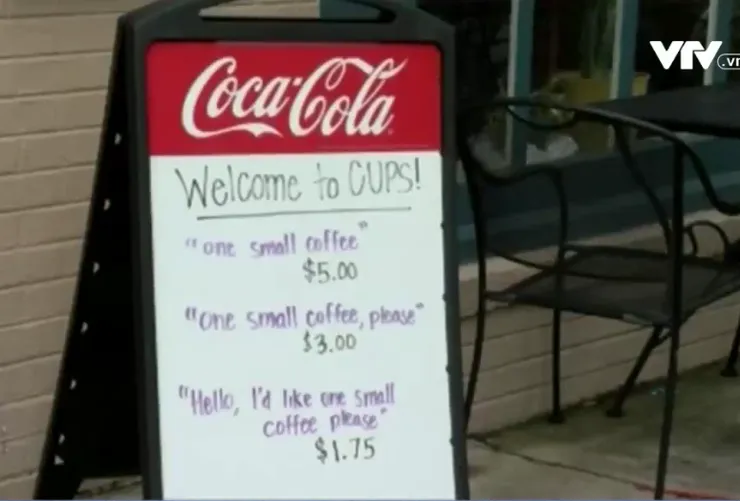 VTV.vn
Coca-Cola
Welcome to CUPS!
"one small coffee"
$5.00
"One small coffee, please"
$3.00
"Hello, I'd like one small
coffee please"
$1.75